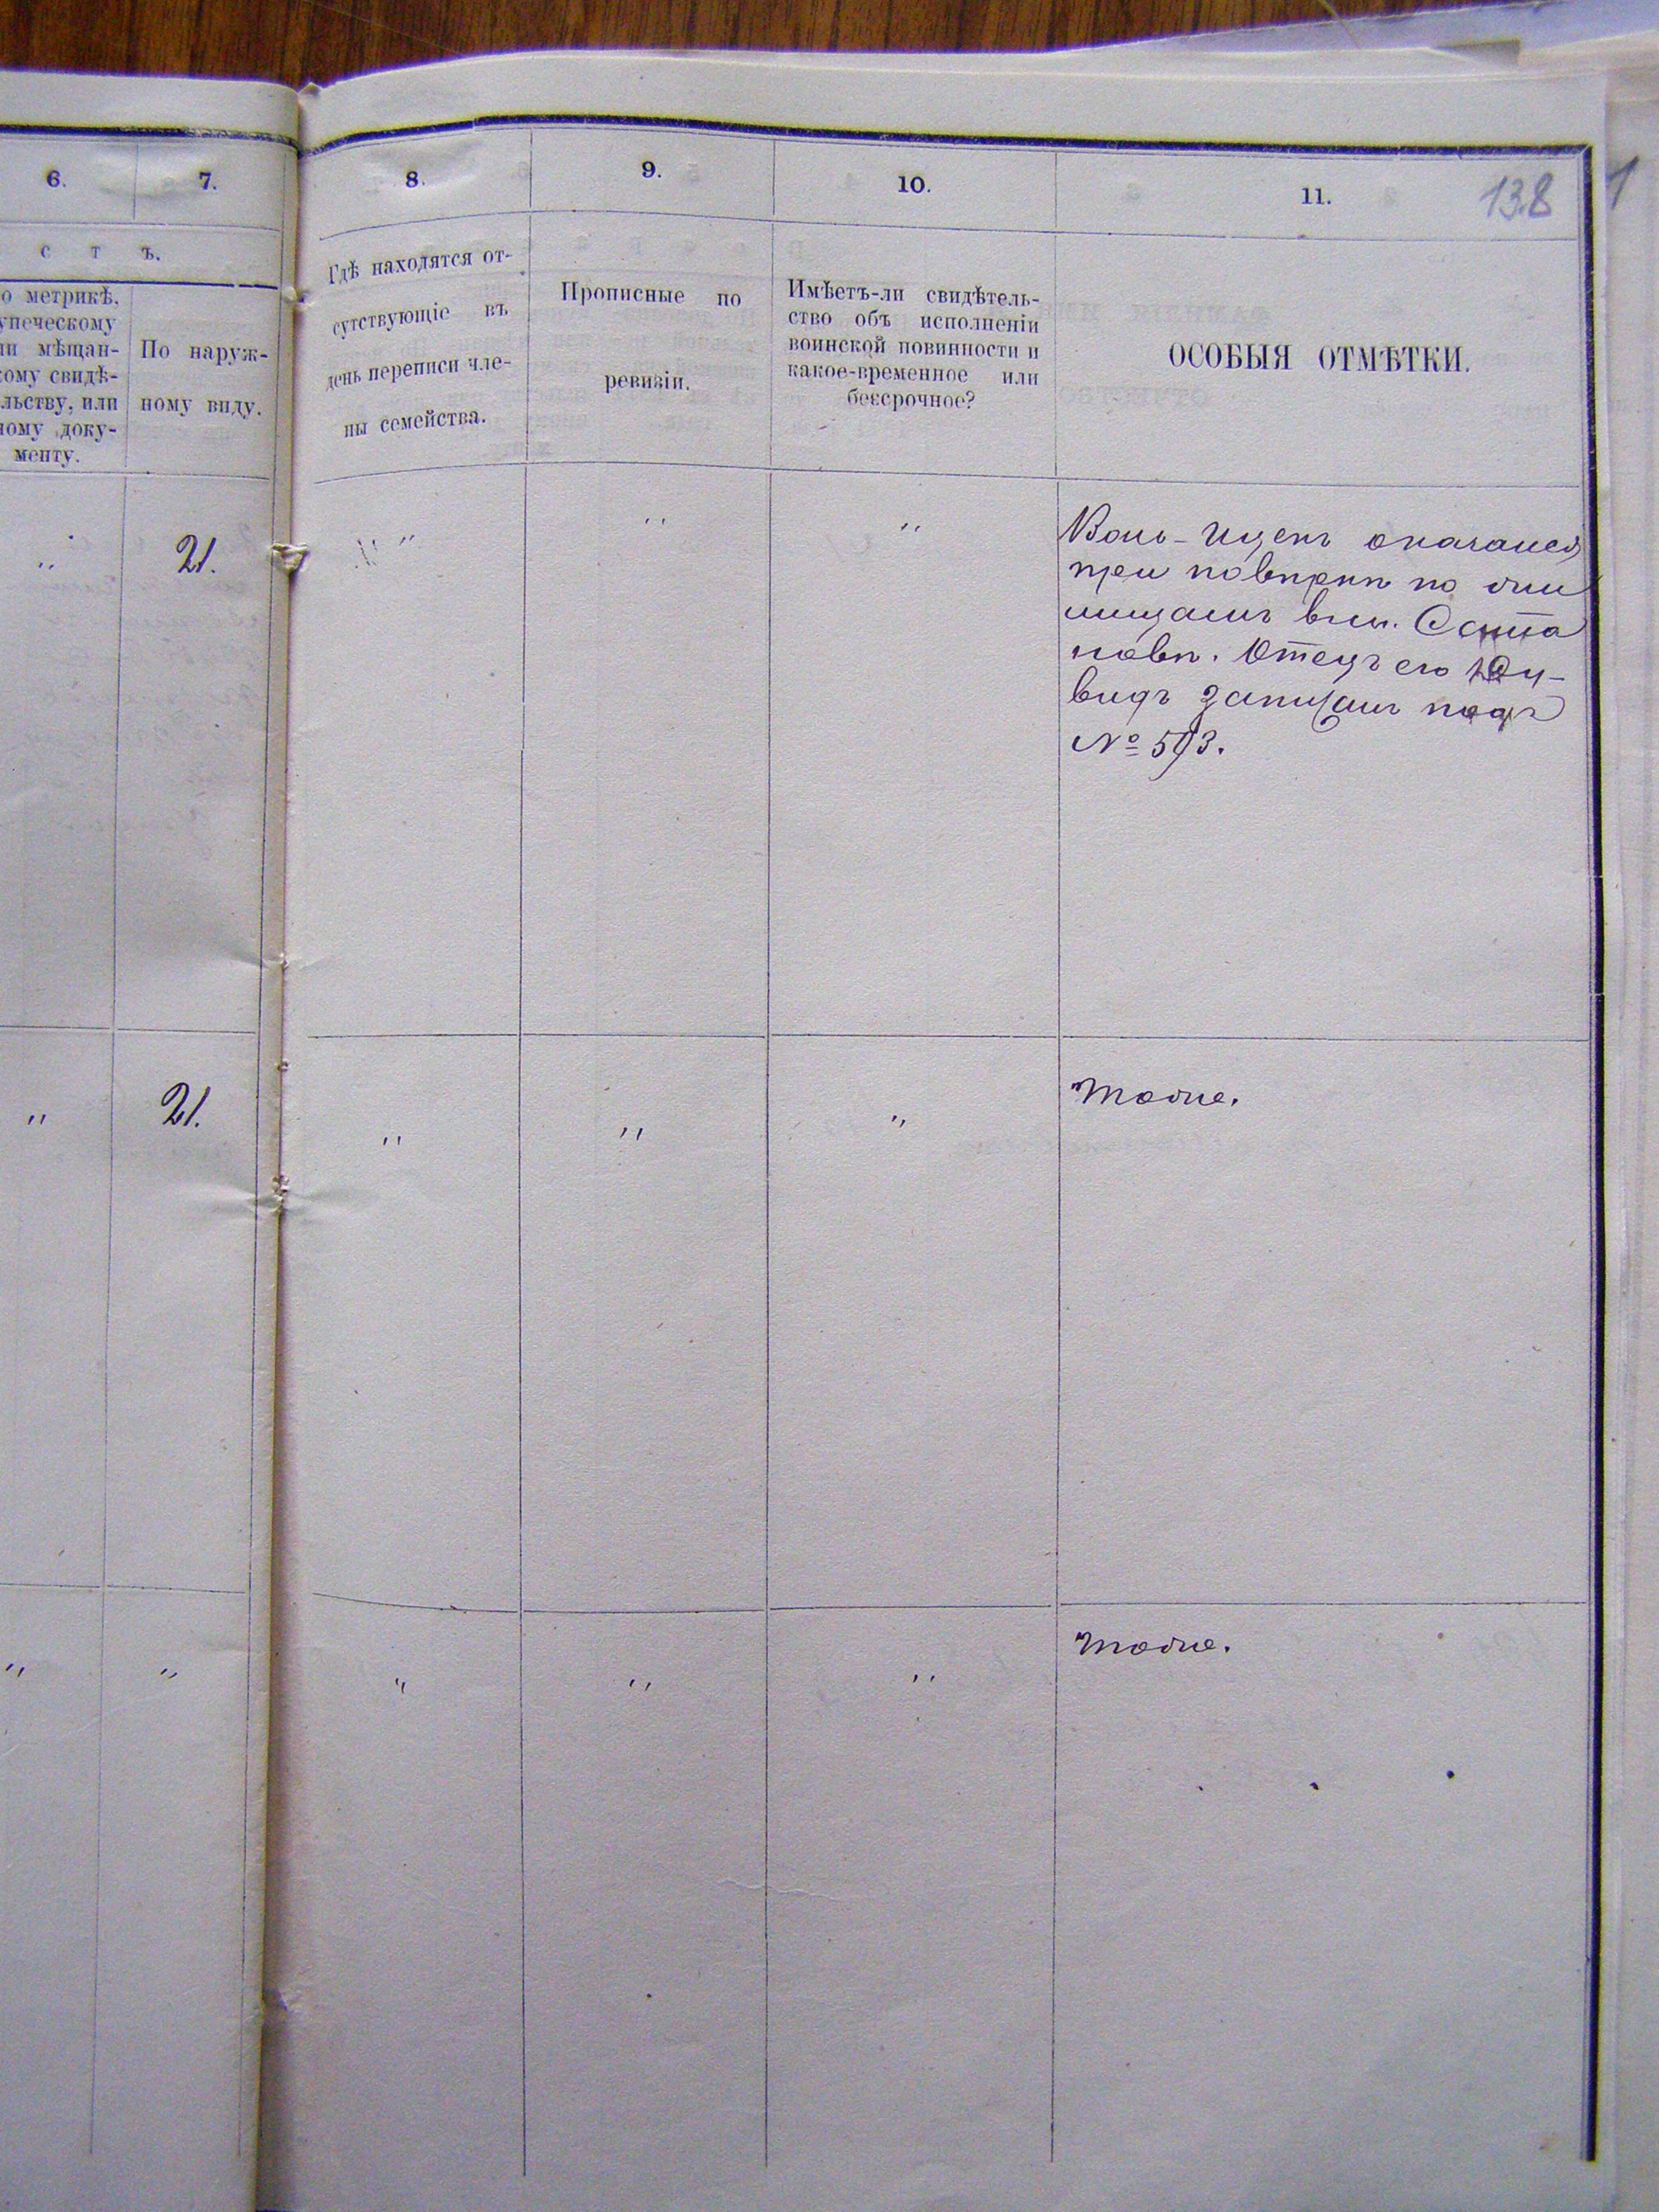 6.
7.
8.
9.
10.
11.
138
1
с т ъ.
о метрикѣ,
упеческому
ли мѣщан-
кому свидѣ-
льству, или
ному доку-
менту.
По наруж-
ному виду.
Гдѣ находятся от-
сутствующіе въ
день переписи чле-
ны семейства.
Прописные по
ревизіи.
Имѣетъ-ли свидѣтель-
ство объ исполненіи
воинской повинности и
какое-временное или
бессрочное?
ОСОБЫЯ ОТМѢТКИ.
" 21. " " "
оказался
при повѣркѣ по
Отецъ его
видъ записанъ подъ
№ 593.
" 21. " " " Тоже.
" " " " " Тоже.